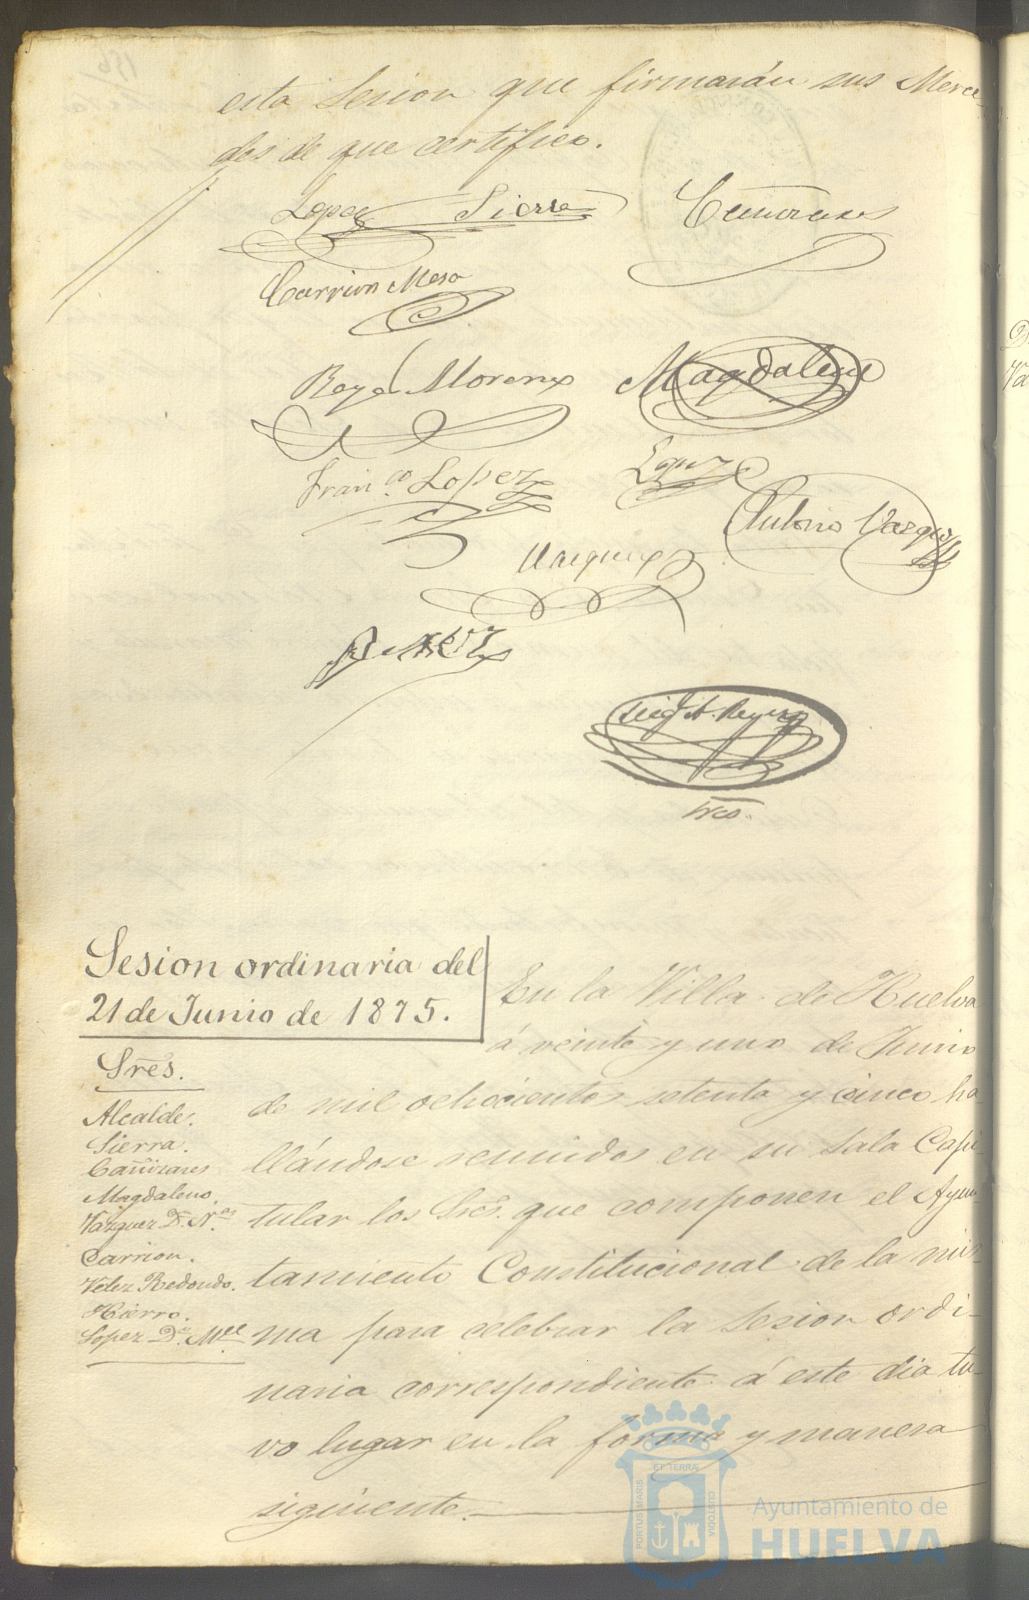 esta Sesion que firmarán sus Merce
des de que certifico.
Lopez Sierra Cañizares
Carrion Mesa
Moreno Magdaleno
Franco Lopez Lopez
Antonio Vazquez
Vazquez
Srio.
Sesion ordinaria del
21 de Junio de 1875.
Sres.
Alcalde.
Sierra.
Cañizares
Magdaleno.
Vazquez D. Nas
Carrion.
Velez Redondo.
Hierro.
Lopez Dn. Mel
En la Villa de Huelva
á veinte y uno de Junio
de mil ochocientos setenta y cinco ha
llándose reunidos en su Sala Capi
tular los Sres. que componen el Ayun
tamiento Constitucional de la mis-
ma para celebrar la Sesion ordi-
naria correspondiente á este dia tu-
vo lugar en la forma y manera
siguiente.
PORTUS MARIS
ET TERRÆ
CUSTODIA
Ayuntamiento de
HUELVA